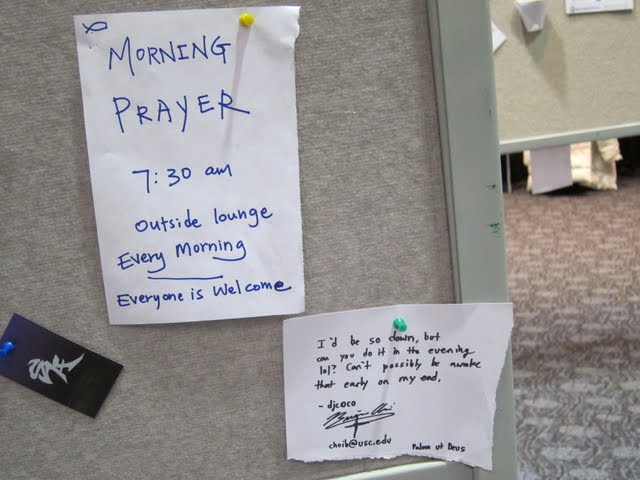 MORNING
PRAYER
7:30 am
outside lounge
Every Morning
Everyone is Welcome
I'd be so down, but
can you do it in the evening
lol? Can't possibly be awake
that early on my end.
- djcoco
choib@usc.edu
Palma ut Deus